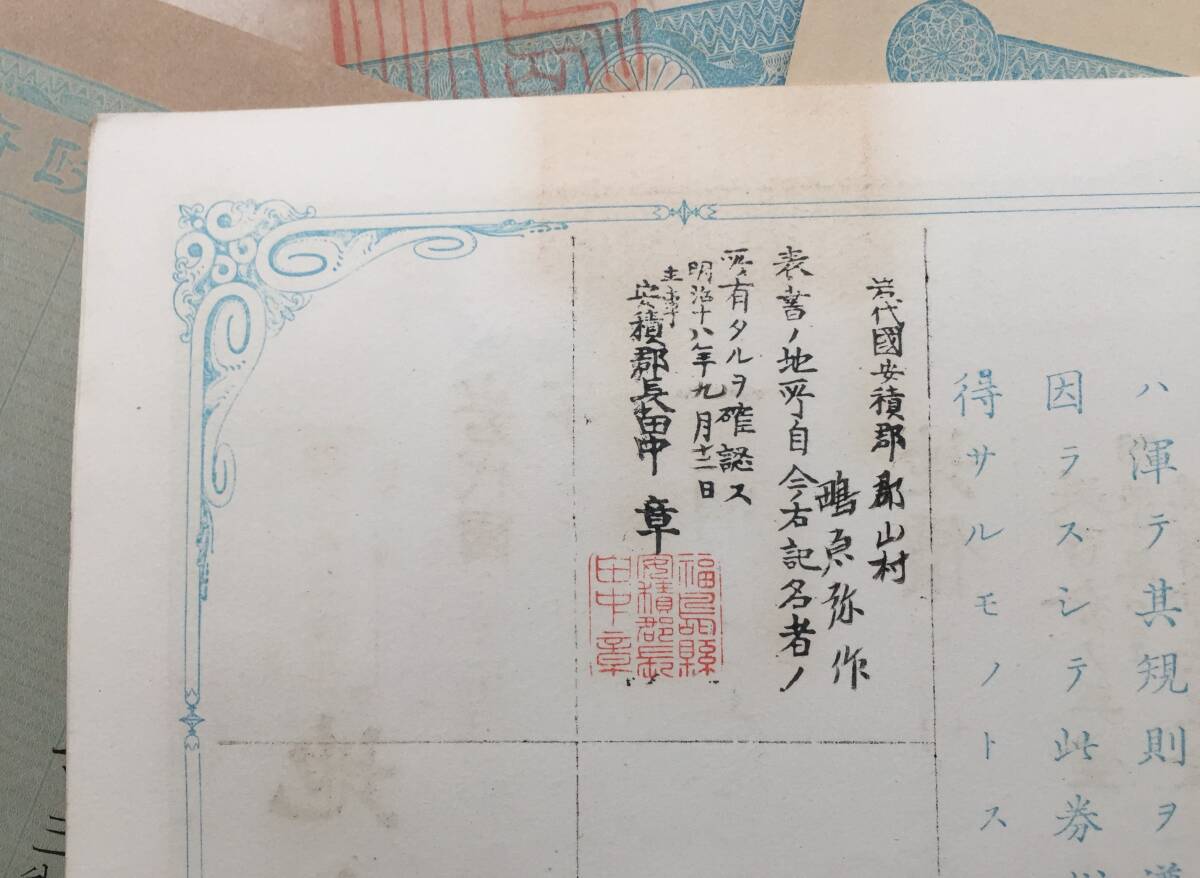 ハ渾テ其規則ヲ
因ラスシテ此券
得サルモノトス
岩代國安積郡郡山村
鴫原弥作
表書ノ地所自今右記名者ノ
所有タルヲ確認ス
明治十八年九月十二日
安積郡長田中章
福島縣
安積郡長
田中章